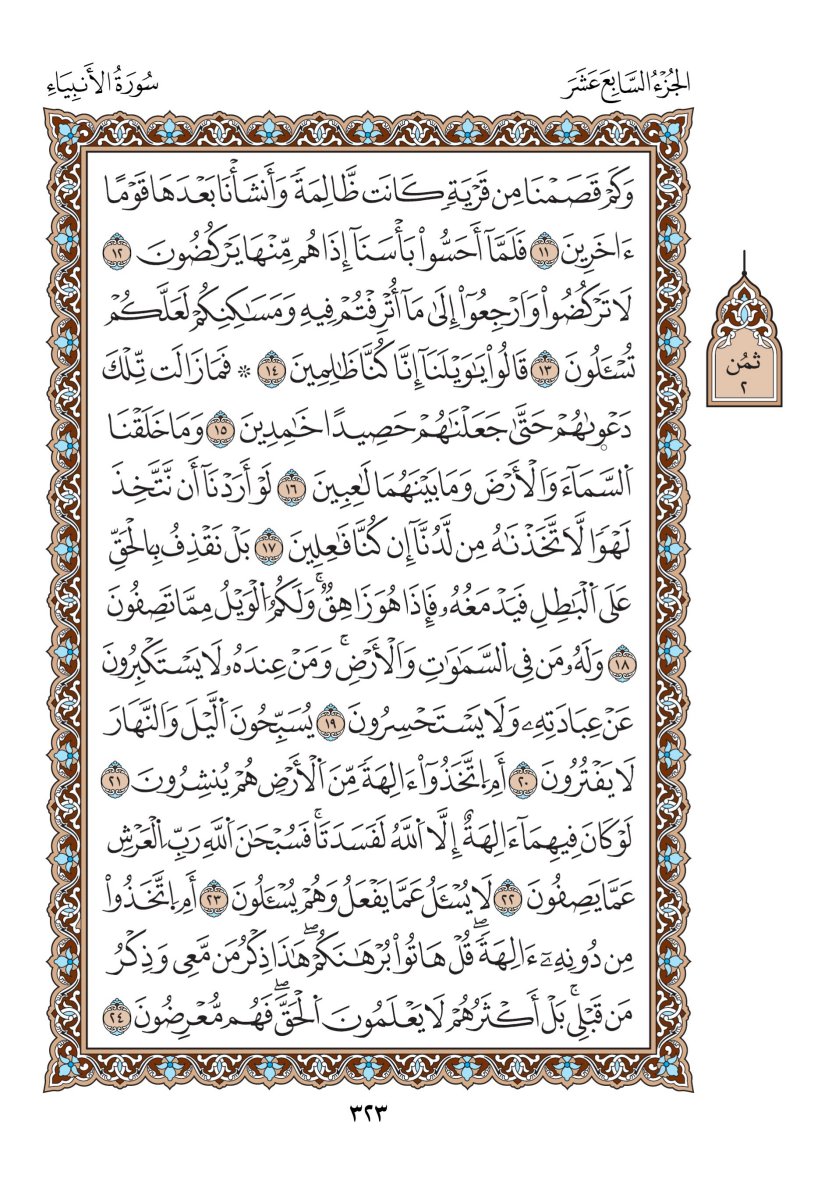 الجُزْءُ السَّابِعَ عَشَرَ
سُورَةُ الأَنبِيَاءِ
وَكَمْ قَصَمْنَا مِن قَرْيَةٖ كَانَت ظَّالِمَةٗ وَأَنشَأْنَا بَعْدَهَا قَوْمًا
ءَاخَرِينَ ١١ فَلَمَّآ أَحَسُّواْ بَأْسَنَآ إِذَا هُم مِّنْهَا يَرْكُضُونَ ١٢
لَا تَرْكُضُواْ وَارْجِعُوٓاْ إِلَىٰ مَآ أُتْرِفْتُمْ فِيهِ وَمَسَٰكِنِكُمْ لَعَلَّكُمْ
تُسْـَٔلُونَ ١٣ قَالُواْ يَٰوَيْلَنَآ إِنَّا كُنَّا ظَٰلِمِينَ ١٤ ۞ فَمَا زَالَت تِّلْكَ
دَعْوٜىٰهُمْ حَتَّىٰ جَعَلْنَٰهُمْ حَصِيدًا خَٰمِدِينَ ١٥ وَمَا خَلَقْنَا
اَ۬لسَّمَآءَ وَالْأَرْضَ وَمَا بَيْنَهُمَا لَٰعِبِينَ ١٦ لَوْ أَرَدْنَآ أَن نَّتَّخِذَ
لَهْوٗا لَّاتَّخَذْنَٰهُ مِن لَّدُنَّآ إِن كُنَّا فَٰعِلِينَ ١٧ بَلْ نَقْذِفُ بِالْحَقِّ
عَلَى اَ۬لْبَٰطِلِ فَيَدْمَغُهُۥ فَإِذَا هُوَ زَاهِقٞۚ وَلَكُمُ اُ۬لْوَيْلُ مِمَّا تَصِفُونَ
١٨ وَلَهُۥ مَن فِي اِ۬لسَّمَٰوَٰتِ وَالْأَرْضِۚ وَمَنْ عِندَهُۥ لَا يَسْتَكْبِرُونَ
عَنْ عِبَادَتِهِۦ وَلَا يَسْتَحْسِرُونَ ١٩ يُسَبِّحُونَ اَ۬لَّيْلَ وَالنَّهَارَ
لَا يَفْتُرُونَ ٢٠ أَمِ اِ۪تَّخَذُوٓاْ ءَالِهَةٗ مِّنَ اَ۬لْأَرْضِ هُمْ يُنشِرُونَ ٢١
لَوْ كَانَ فِيهِمَآ ءَالِهَةٌ إِلَّا اَ۬للَّهُ لَفَسَدَتَاۚ فَسُبْحَٰنَ اَ۬للَّهِ رَبِّ اِ۬لْعَرْشِ
عَمَّا يَصِفُونَ ٢٢ لَا يُسْـَٔلُ عَمَّا يَفْعَلُ وَهُمْ يُسْـَٔلُونَ ٢٣ أَمِ اِ۪تَّخَذُواْ
مِن دُونِهِۦٓ ءَالِهَةٗۖ قُلْ هَاتُواْ بُرْهَٰنَكُمْۖ هَٰذَا ذِكْرُ مَن مَّعِي وَذِكْرُ
مَن قَبْلِيۚ بَلْ أَكْثَرُهُمْ لَا يَعْلَمُونَ اَ۬لْحَقَّۖ فَهُم مُّعْرِضُونَ ٢٤
ثمُن
٢
٣٢٣